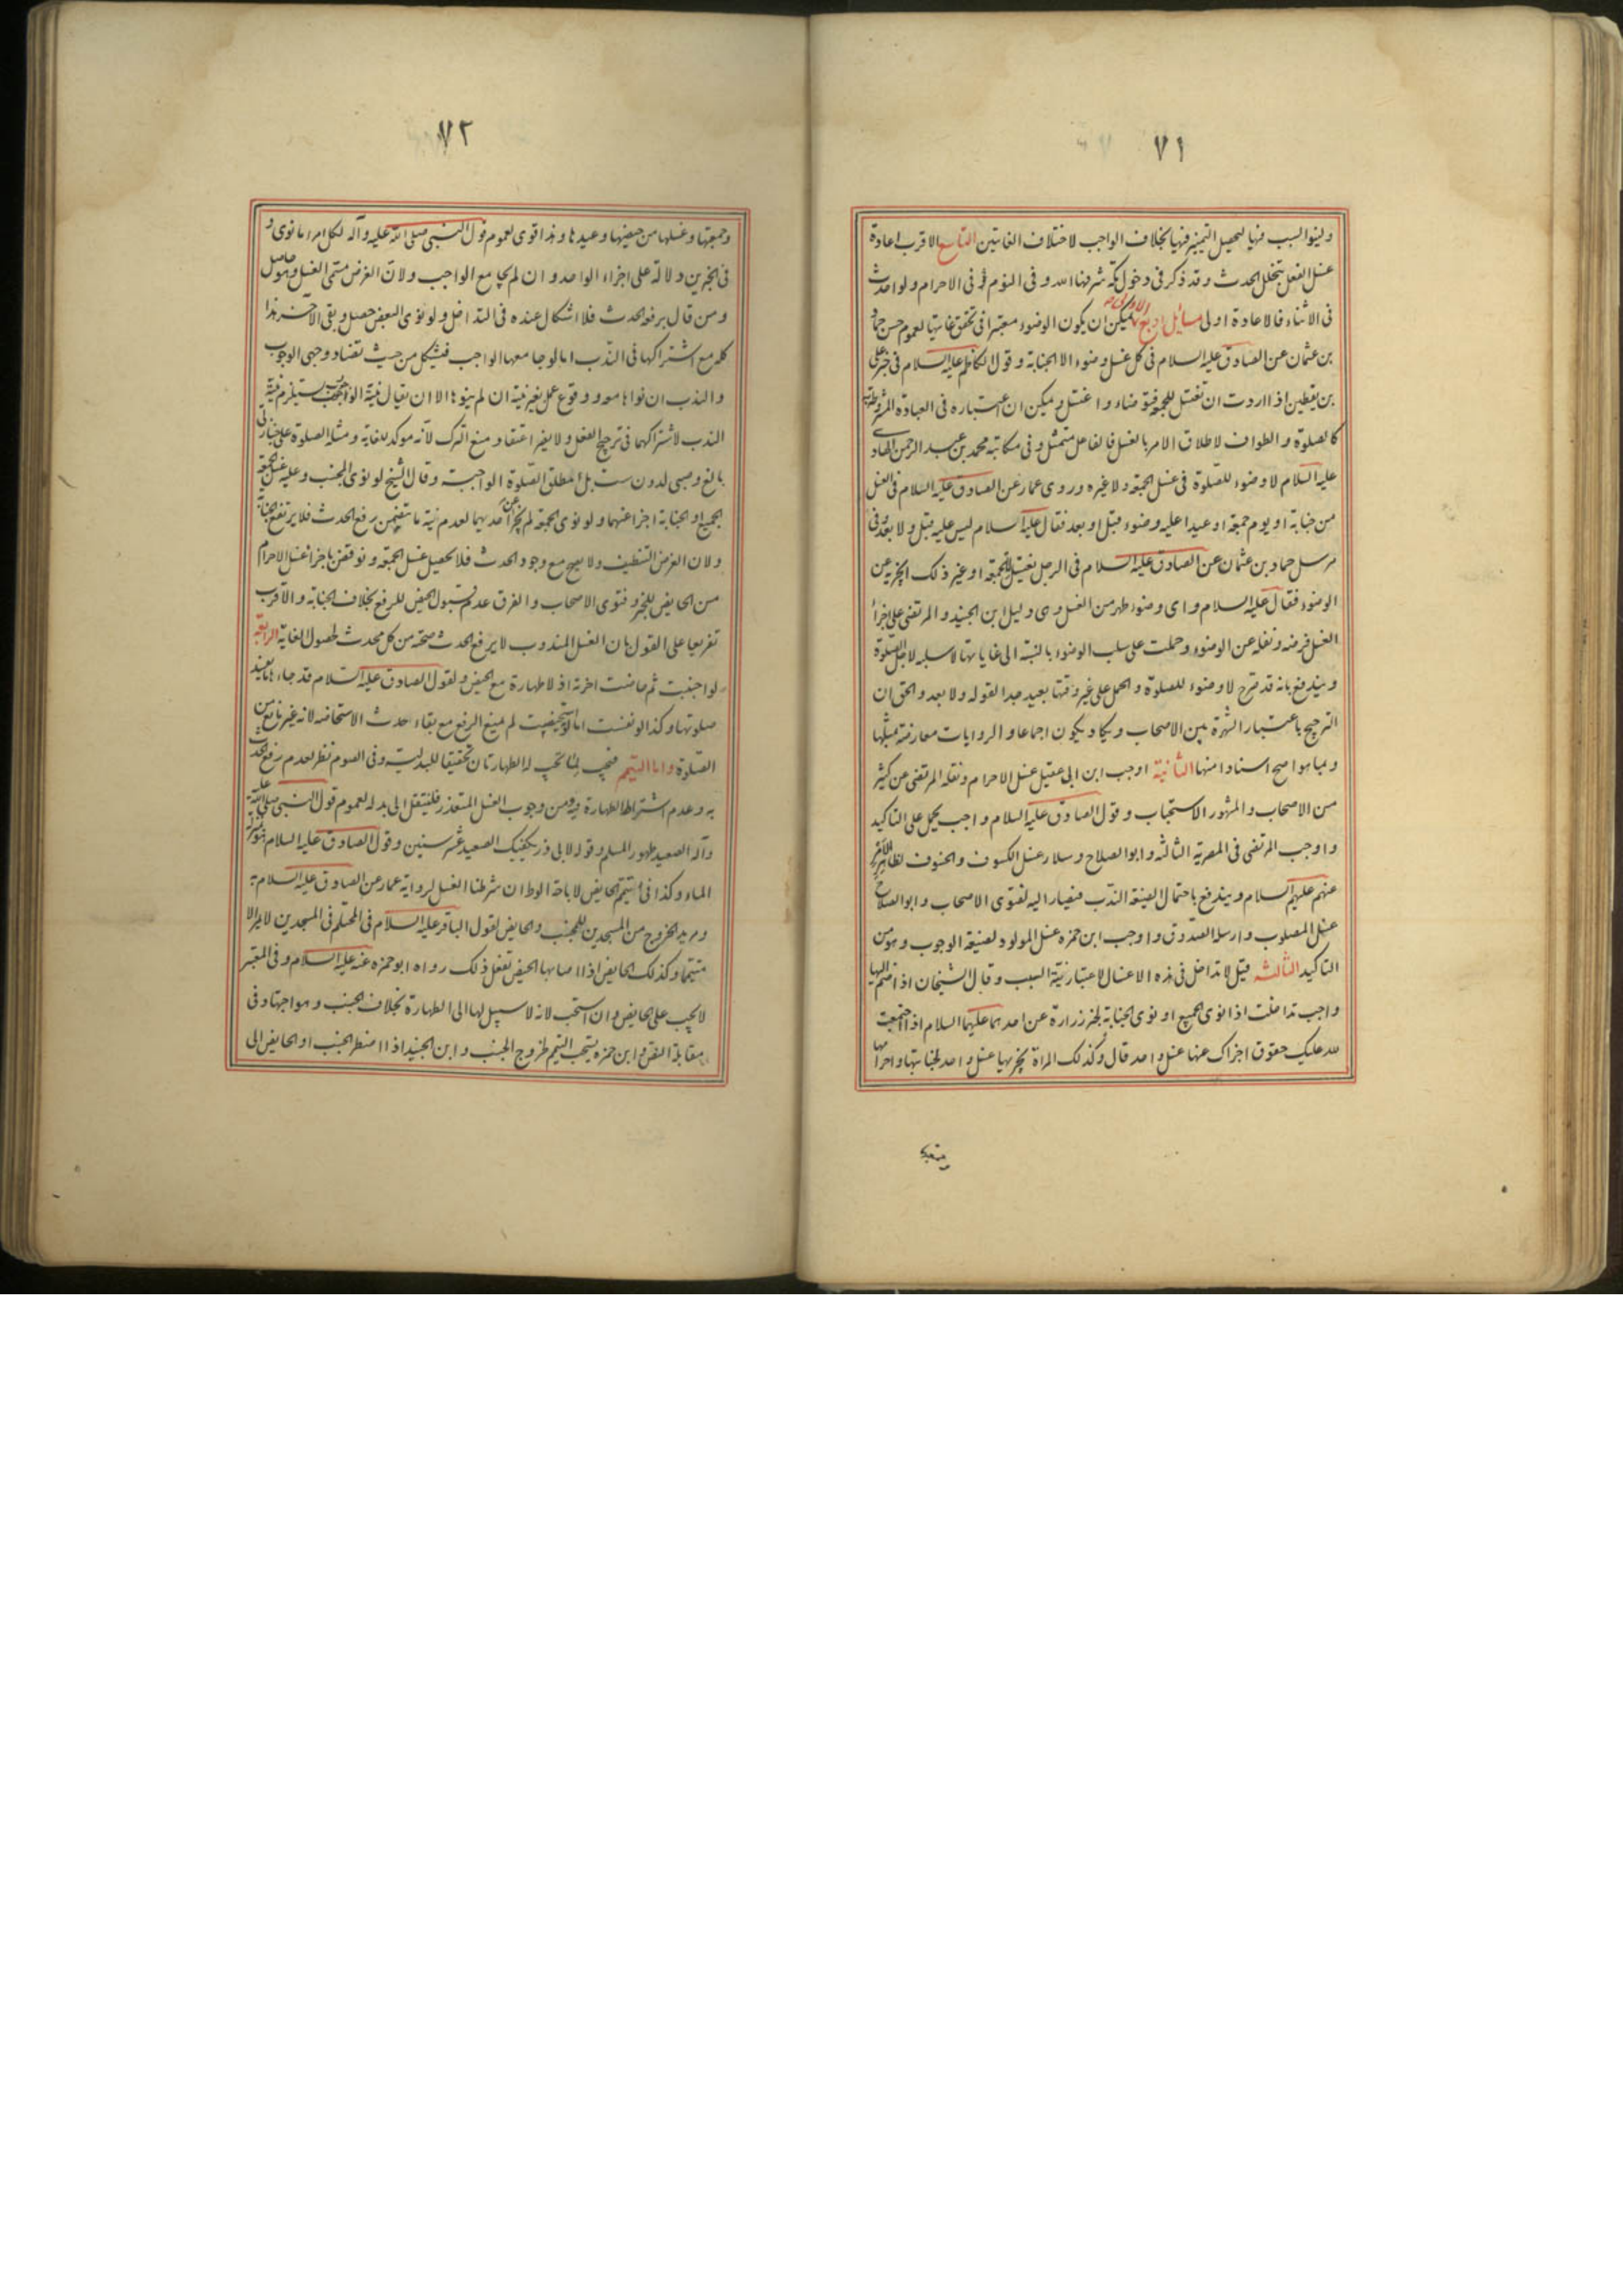 ٧١
ولینو السبب فیها لتحصیل التمییز فیها بخلاف الواجب لاختلاف الغایتین التاسع الاقرب اعادة
غسل الفعل بتخلل الحدث وقد ذکر فی دخول مکة شرفها الله وفی النوم فی الاحرام ولو احدث
فی الاثناء فالاعادة اولی مسائل اربع الاولی یمکن ان یکون الوضوء معتبرا فی تحقق غایتها لعموم حسن حماد
بن عثمان عن الصادق علیه السلام فی کل غسل وضوء الا الجنابة وقول الکاظم علیه السلام فی خبر علی
بن یقطین اذا اردت ان تغتسل للجمعة فتوضاء واغتسل ویمکن ان اعتباره فی العبادة المشروطة به
کالصلوة والطواف لاطلاق الامر بالغسل فالفاعل ممتثل وفی مکاتبة محمد بن عبد الرحمن الهادی
علیه السلام لا وضوء للصلوة فی غسل الجمعة ولا غیره وروی عمار عن الصادق علیه السلام فی الغسل
من جنابة او یوم جمعة او عید اعلیه وضوء قبل او بعد فقال علیه السلام لیس علیه قبل ولا بعد وفی
مرسل حماد بن عثمان عن الصادق علیه السلام فی الرجل یغتسل للجمعة او غیر ذلک ایجزیه عن
الوضوء فقال علیه السلام وای وضوء اطهر من الغسل وهی دلیل ابن الجنید والمرتضی علی اجزاء
الغسل فرضه ونفله عن الوضوء وحملت علی سلب الوضوء بالنسبة الی غایاتها لا سلبه لاجل الصلوة
ویندفع بانه قد صرح لا وضوء للصلوة والحمل علی غیر وقتها بعید جدا لقوله ولا بعد والحق ان
الترجیح باعتبار الشهرة بین الاصحاب ویکاد یکون اجماعا والروایات معارضة بمثلها
وبما هو اصح اسنادا منها الثانیة اوجب ابن ابی عقیل غسل الاحرام ونقله المرتضی عن کثیر
من الاصحاب والمشهور الاستحباب وقول الصادق علیه السلام واجب یحمل علی التاکید
واوجب المرتضی فی المصریة الثالثة وابو الصلاح وسلار غسل الکسوف والخسوف لظاهر الامر
عنهم علیهم السلام ویندفع باحتمال الصیغة الندب فیصار الیه لفتوی الاصحاب وابو الصلاح
غسل المصلوب وارسله الصدوق واوجب ابن حمزه غسل المولود لصیغة الوجوب وهو من
التاکید الثالثة قیل لا تداخل فی هذه الاغسال لاعتبار نیة السبب وقال الشیخان اذا انضم الیها
واجب تداخلت اذا نوی الجمیع او نوی الجنابة لخبر زرارة عن احدهما علیهما السلام اذا اجتمعت
لله علیک حقوق اجزاک عنها غسل واحد قال وکذلک المراة یجزیها غسل واحد لجنابتها واحرامها
وجمعتها
٧٢
وجمعتها وغسلها من حیضها وعیدها وهذا اقوی لعموم قول النبی صلی الله علیه وآله لکل امرء ما نوی و
فی الخبرین دلالة علی اجزاء الواحد وان لم یجامع الواجب ولان الغرض مسمی الغسل وهو حاصل
ومن قال برفع الحدث فلا اشکال عنده فی التداخل ولو نوی البعض حصل وبقی الآخر هذا
کله مع اشتراکها فی الندب اما لو جامعها الواجب فیشکل من حیث تضاد وجهی الوجوب
والندب ان نواهما معا ووقوع عمل بغیر نیة ان لم ینوها الا ان یقال نیة الوجوب یستلزم نیة
الندب لاشتراکهما فی ترجیح الفعل ولا یضر اعتقاد منع الترک لانه موکد للغایة ومثله الصلوة علی جنازتی
بالغ وصبی لدون ست بل مطلق الصلوة الواجبة وقال الشیخ لو نوی المجنب وعلیه غسل الجمعة
الجمیع او الجنابة اجزا عنهما ولو نوی الجمعة لم یجز عن احدیهما لعدم نیة ما یتضمن رفع الحدث فلا یرتفع الجنابة
ولان الغرض التنظیف ولا یصح مع وجود الحدث فلا یحصل غسل الجمعة ونوقض باجزاء غسل الاحرام
من الحایض للخبر وفتوی الاصحاب والفرق عدم قبول الحیض للرفع بخلاف الجنابة والاقرب
تفریعا علی القول بان الغسل المندوب لا یرفع الحدث صحته من کل محدث لحصول الغایة الرابعة
لو اجنبت ثم حاضت اخرته اذ لا طهارة مع الحیض ولقول الصادق علیه السلام قد جاءها ما یفسد
صلوتها وکذا لو نفست اما لو استحیضت لم یمنع الرفع مع بقاء حدث الاستحاضه لانه غیر مانع من
الصلوة واما التیمم فیجب لما تجب له الطهارتان تحقیقا للبدلیة وفی الصوم نظر لعدم رفع الحدث
به وعدم اشتراط الطهارة فیه ومن وجوب الغسل المتعذر فلینتقل الی بدله لعموم قول النبی صلی الله علیه
وآله الصعید طهور المسلم وقوله لابی ذر یکفیک الصعید عشر سنین وقول الصادق علیه السلام هو بمنزلة
الماء وکذا فی تیمم الحایض لاباحة الوطء ان شرطنا الغسل لروایة عمار عن الصادق علیه السلام به
ومرید الخروج من المسجدین للجنب والحایض لقول الباقر علیه السلام فی المحتلم فی المسجدین لا یمر الا
متیمما وکذلک الحایض اذا اصابها الحیض تفعل ذلک رواه ابو حمزه عنه علیه السلام وفی المعتبر
لا یجب علی الحایض وان استحب لانه لا سبیل لها الی الطهارة بخلاف الجنب وهو اجتهاد فی
مقابلة النص وابن حمزه یستحب التیمم لخروج الجنب وابن الجنید اذا اضطر الجنب او الحایض الی